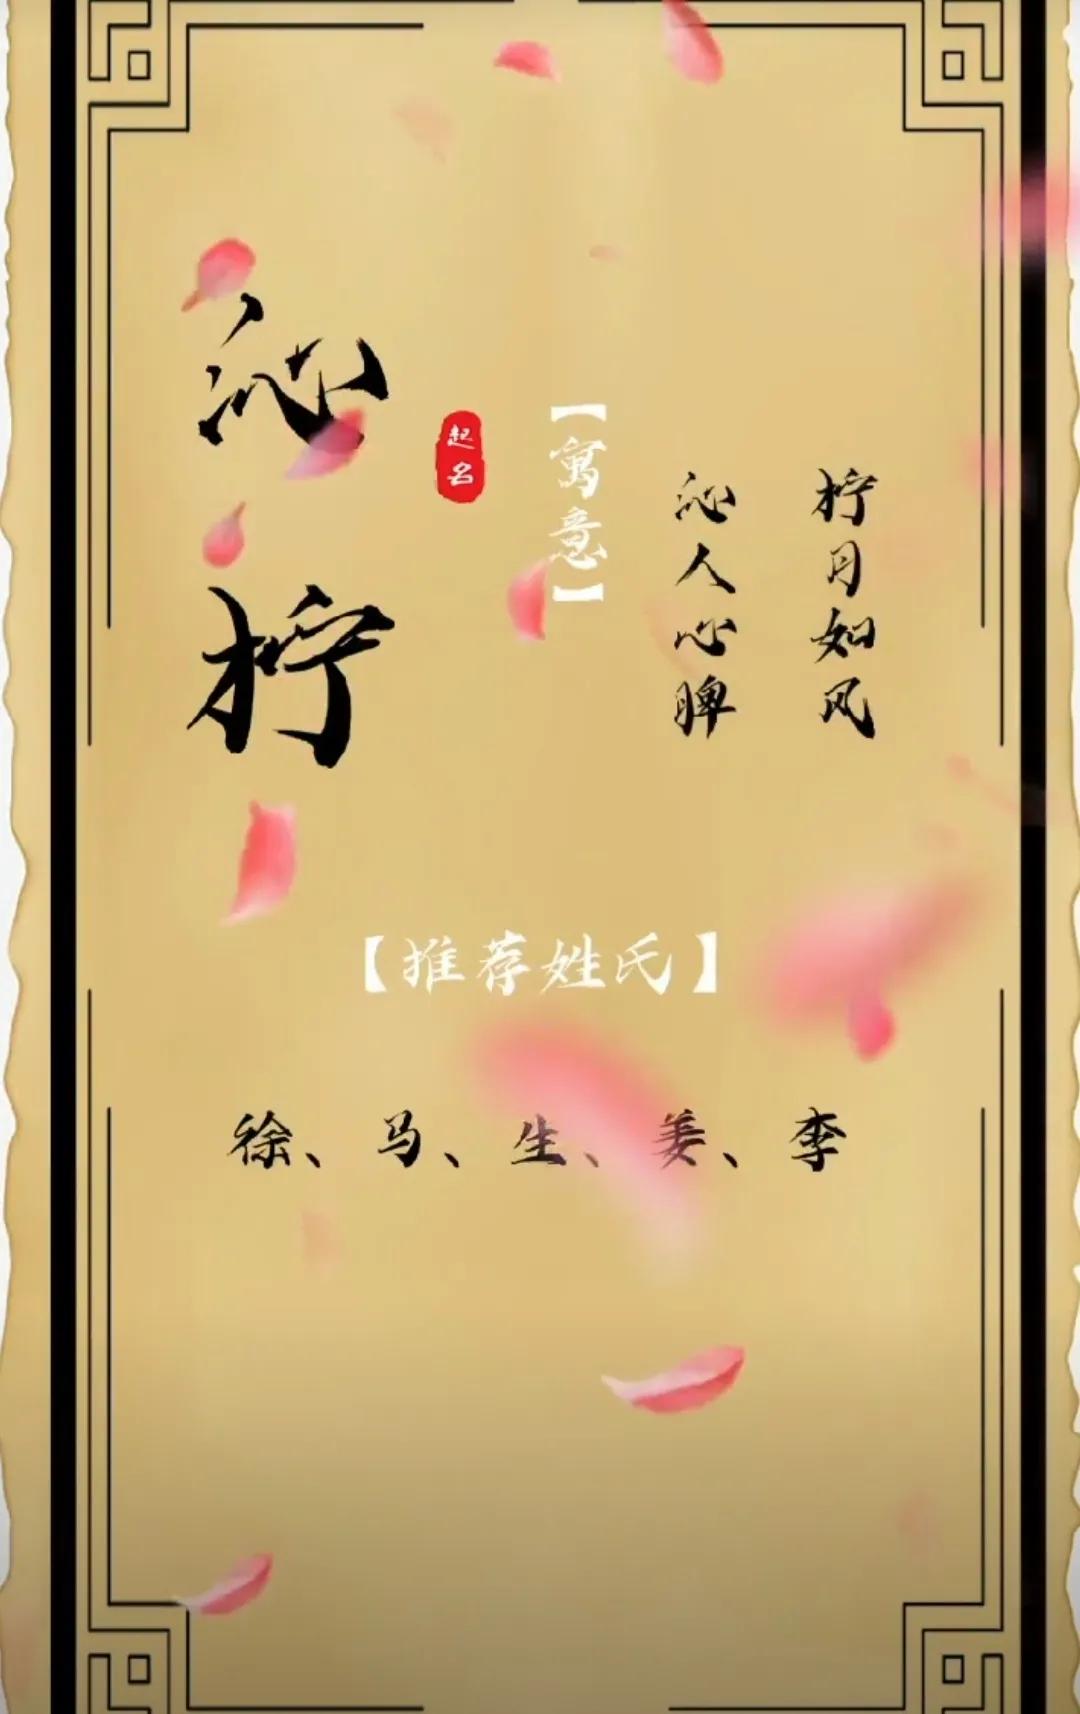 沁柠
起名
【寓意】
沁人心脾
柠月如风
【推荐姓氏】
徐、马、生、姜、李